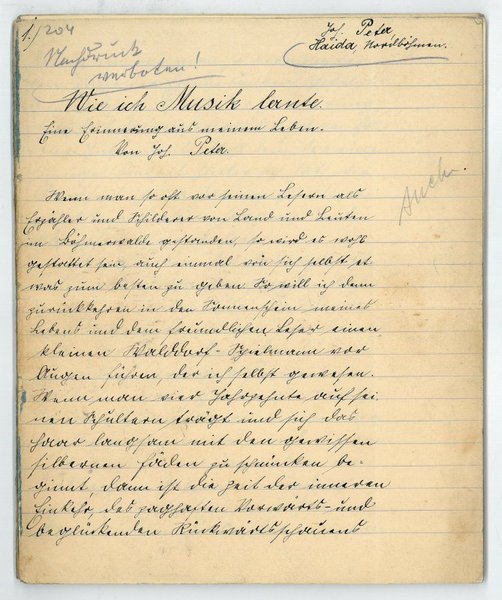 1./204
Joh. Peter
Haida, Nordböhmen.
Nachdruck
verboten!
Wie ich Musik lernte.
Eine Erinnerung aus meinem Leben.
Von Joh. Peter.
Wenn man so oft vor seinen Lesern als
Erzähler und Schilderer von Land und Leuten
im Böhmerwalde gestanden, so wird es wohl
gestattet sein, auch einmal von sich selbst et
was zum besten zu geben. So will ich denn
zurückkehren in den Sonnenschein meines
Lebens und dem freundlichen Leser einen
kleinen Walddorf-Spielmann vor
Augen führen, der ich selbst gewesen.
Wenn man vier Jahrzehnte auf sei
nen Schultern trägt und sich das
Haar langsam mit den gewissen
silbernen Fäden zu schmücken be-
ginnt, dann ist die Zeit der inneren
Einkehr, des zaghaften Vorwärts- und
beglückenden Rückwärtsschauens